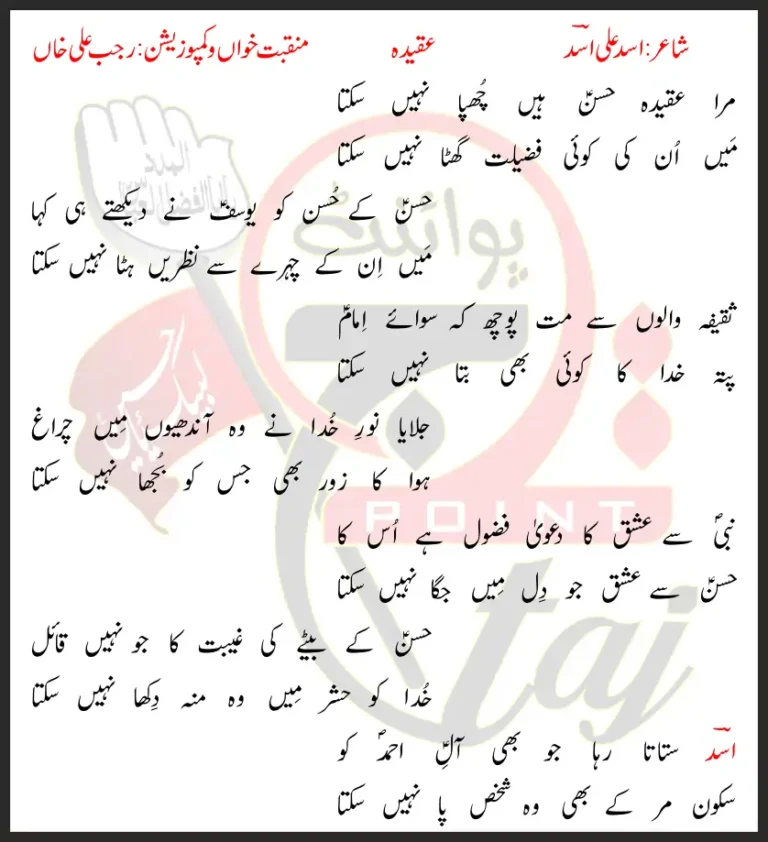 شاعر: اسد علی اسدؔ عقیدہ منقبت خواں و کمپوزیشن: رجب علی خاں
مرا عقیدہ حسنؑ ہیں چُھپا نہیں سکتا
مَیں اُن کی کوئی فضیلت گَھٹا نہیں سکتا
حسنؑ کے حُسن کو یوسفؑ نے دیکھتے ہی کہا
مَیں اِن کے چہرے سے نظریں ہٹا نہیں سکتا
ثقیفہ والوں سے مت پوچھ کہ سوائے اِمامؑ
پتہ خدا کا کوئی بھی بتا نہیں سکتا
جلایا نورِ خُدا نے وہ آندھیوں مِیں چراغ
ہوا کا زور بھی جس کو بُجھا نہیں سکتا
نبیؐ سے عشق کا دعویٰ فضول ہے اُس کا
حسنؑ سے عشق جو دِل مِیں جگا نہیں سکتا
حسنؑ کے بیٹے کی غیبت کا جو نہیں قائل
خُدا کو حشر مِیں وہ منہ دِکھا نہیں سکتا
اسدؔ ستاتا رہا جو بھی آلِؑ احمدؐ کو
سکون مر کے بھی وہ شخص پا نہیں سکتا
پوائنٹ
POINT
taj
لبیک یا حسینؑ
المدد